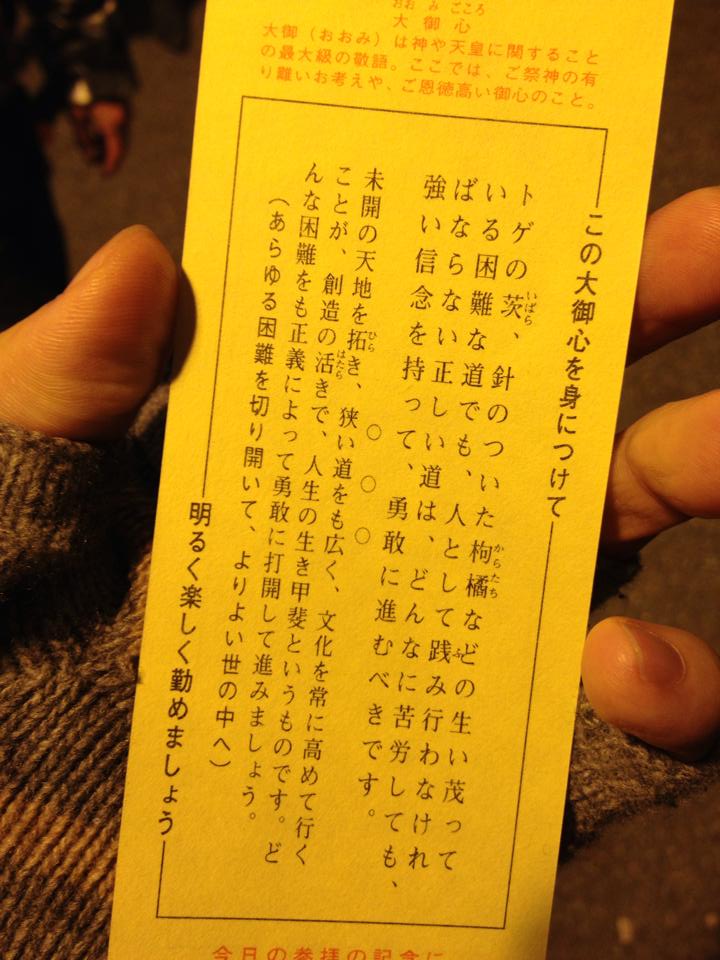 おおみごころ
大御心
大御（おおみ）は神や天皇に関すること
の最大級の敬語。ここでは、ご祭神の有
り難いお考えや、ご恩徳高い御心のこと。
この大御心を身につけて
トゲの茨、針のついた枸橘などの生い茂って
いばら
からたち
いる困難な道でも、人として践み行わなけれ
ふ
ばならない正しい道は、どんなに苦労しても、
強い信念を持って、勇敢に進むべきです。
○○○
未開の天地を拓き、狭い道をも広く、文化を常に高めて行く
ひら
ことが、創造の活きで、人生の生き甲斐というものです。ど
はたら
んな困難をも正義によって勇敢に打開して進みましょう。
（あらゆる困難を切り開いて、よりよい世の中へ）
明るく楽しく勤めましょう
今日の参拝の記念に